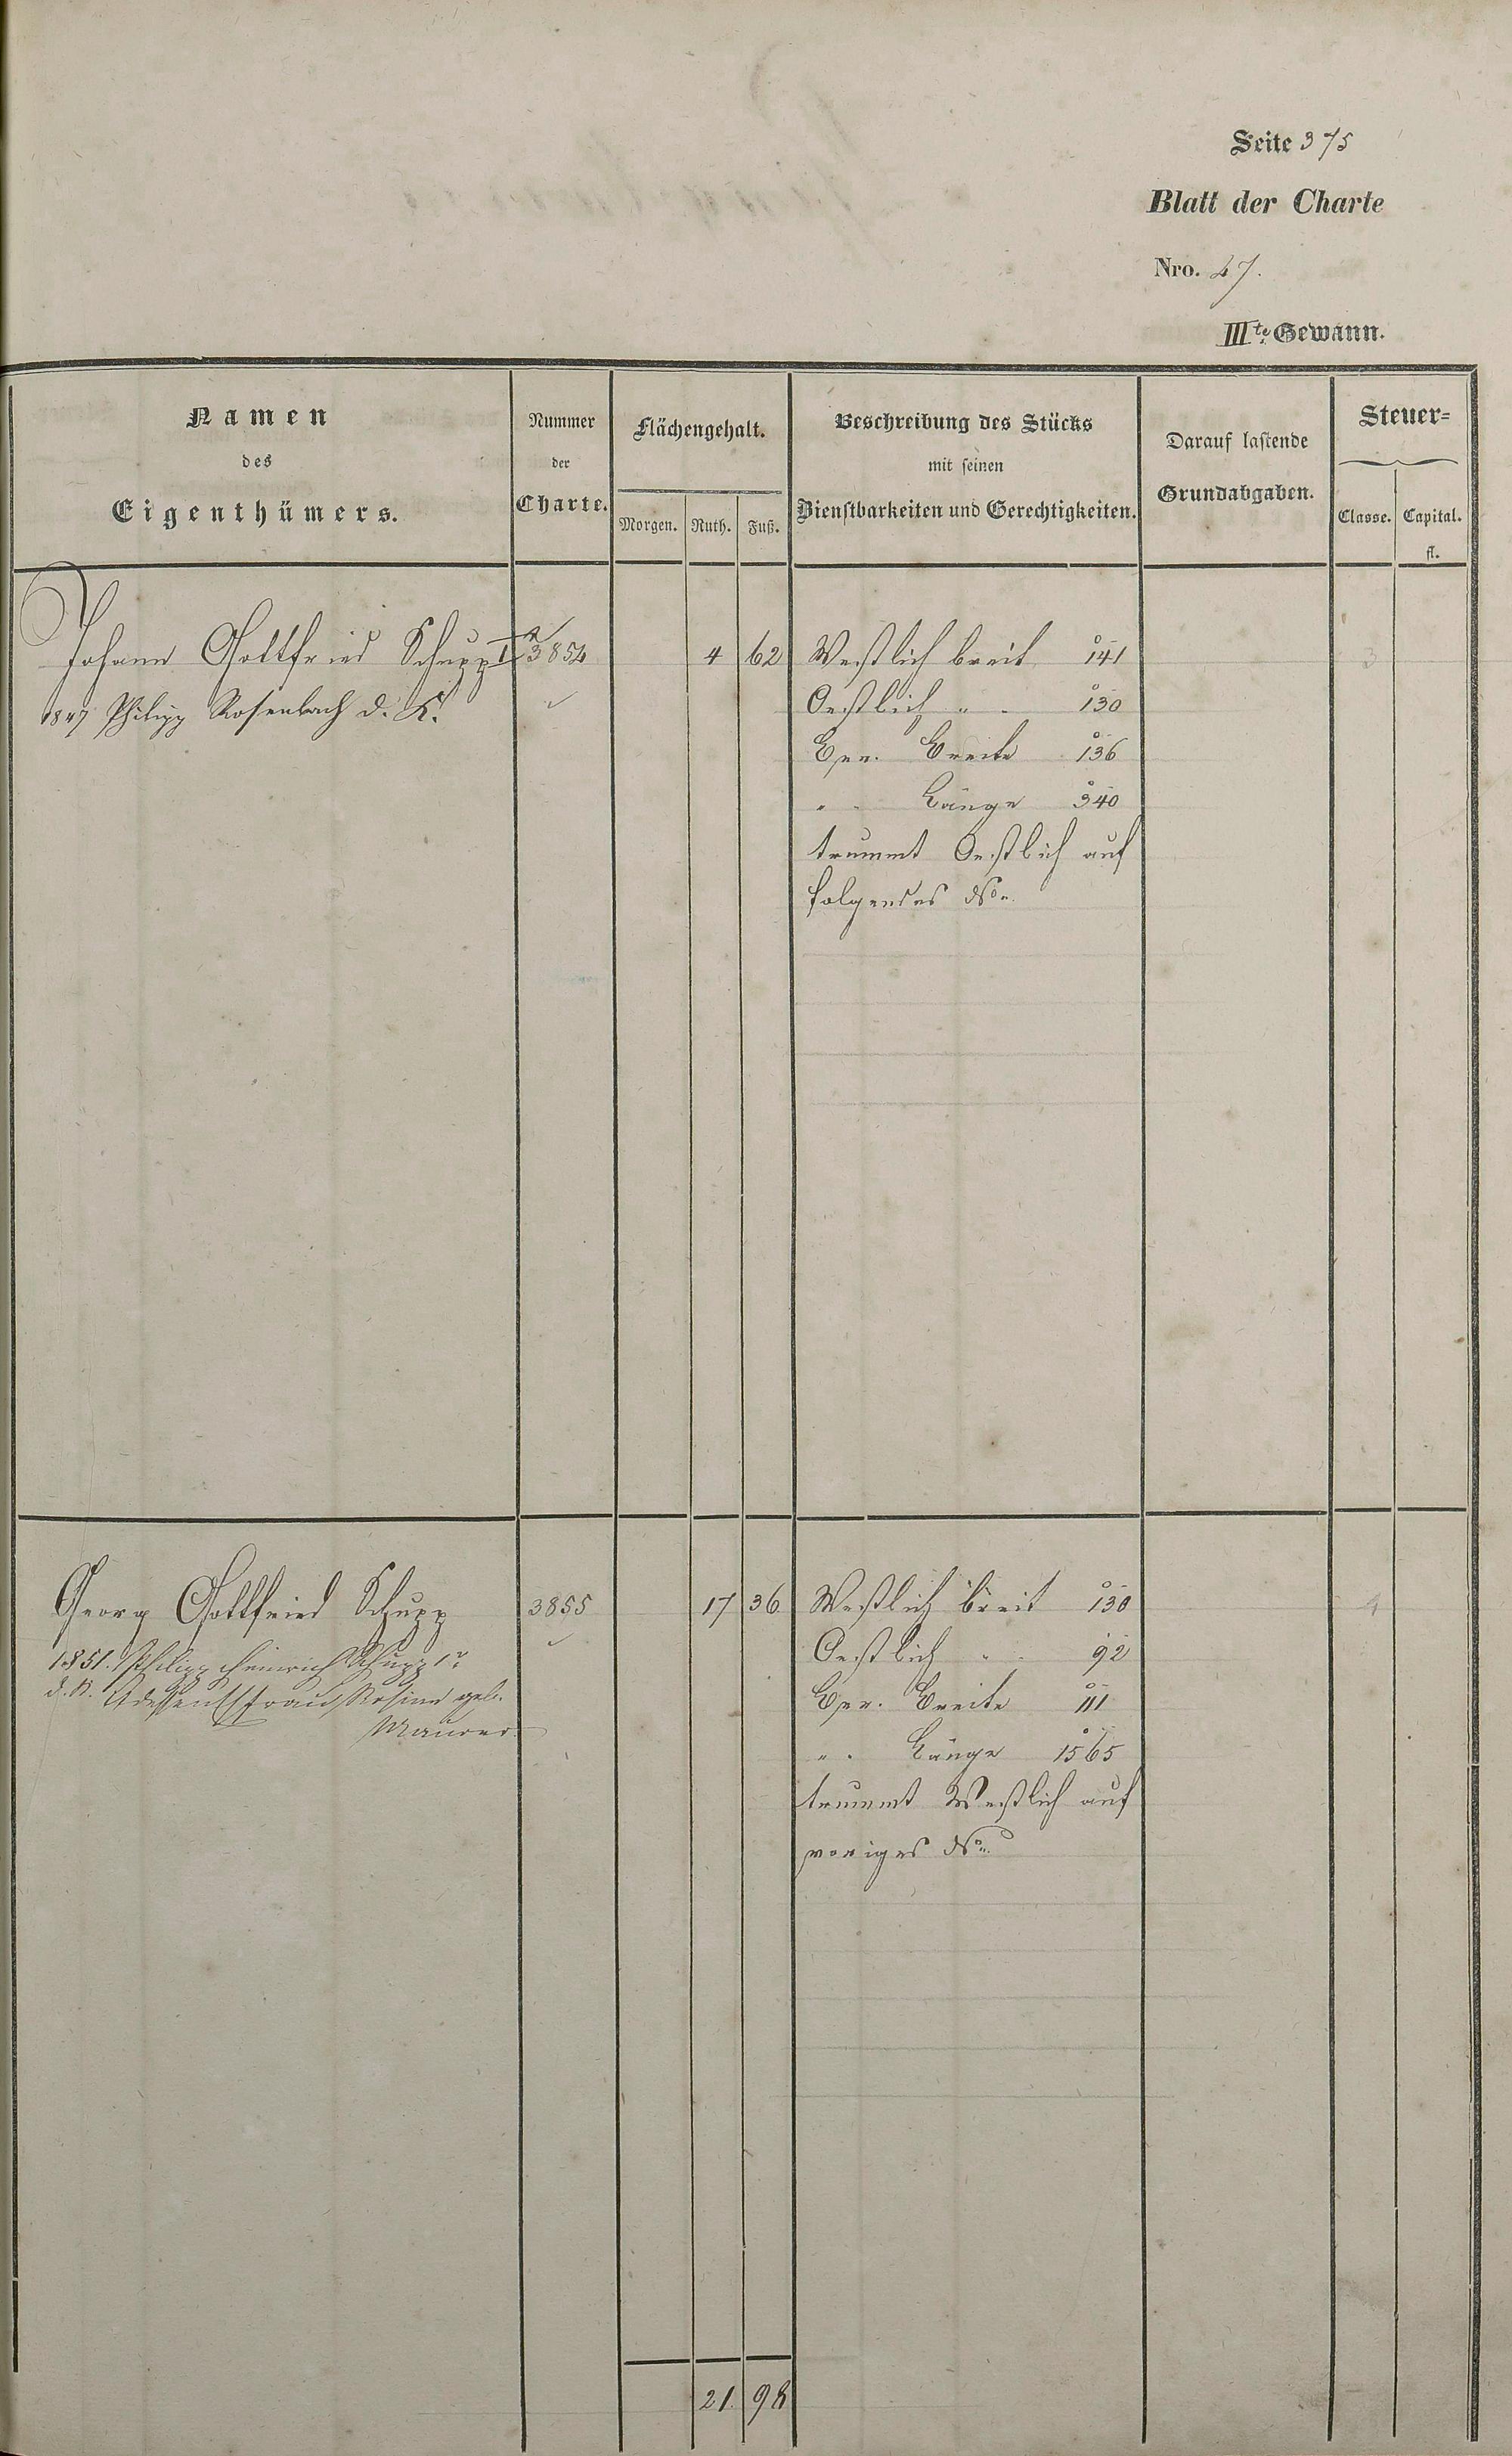 Seite 375
Blatt der Charte
Nro. 47.
III te Gewann.
Namen
des
Eigenthümers.
Nummer
der
Charte.
Flächengehalt.
Morgen. Ruth. Fuß.
Beschreibung des Stücks
mit seinen
Dienstbarkeiten und Gerechtigkeiten.
Darauf lastende
Grundabgaben.
Steuer=
Classe. Capital.
fl.
Johann Gottfried Schupp I 3854 4 62 Westlich breit 141 3
1847 Philipp Rosenbach d. K. Oestlich " 130
Gen. Breite 136
" Länge 340
trummt Oestlich auf
folgendes No.
Georg Gottfried Schupp 3855 17 36 Westlich breit 130 4
1851. Philipp Heinrich Schupp 1r Oestlich " 92
d. K. Ehefrau Rosine geb. Gen. Breite 111
Maurer
" Länge 1565
trummt Westlich auf
voriges No.
21. 98